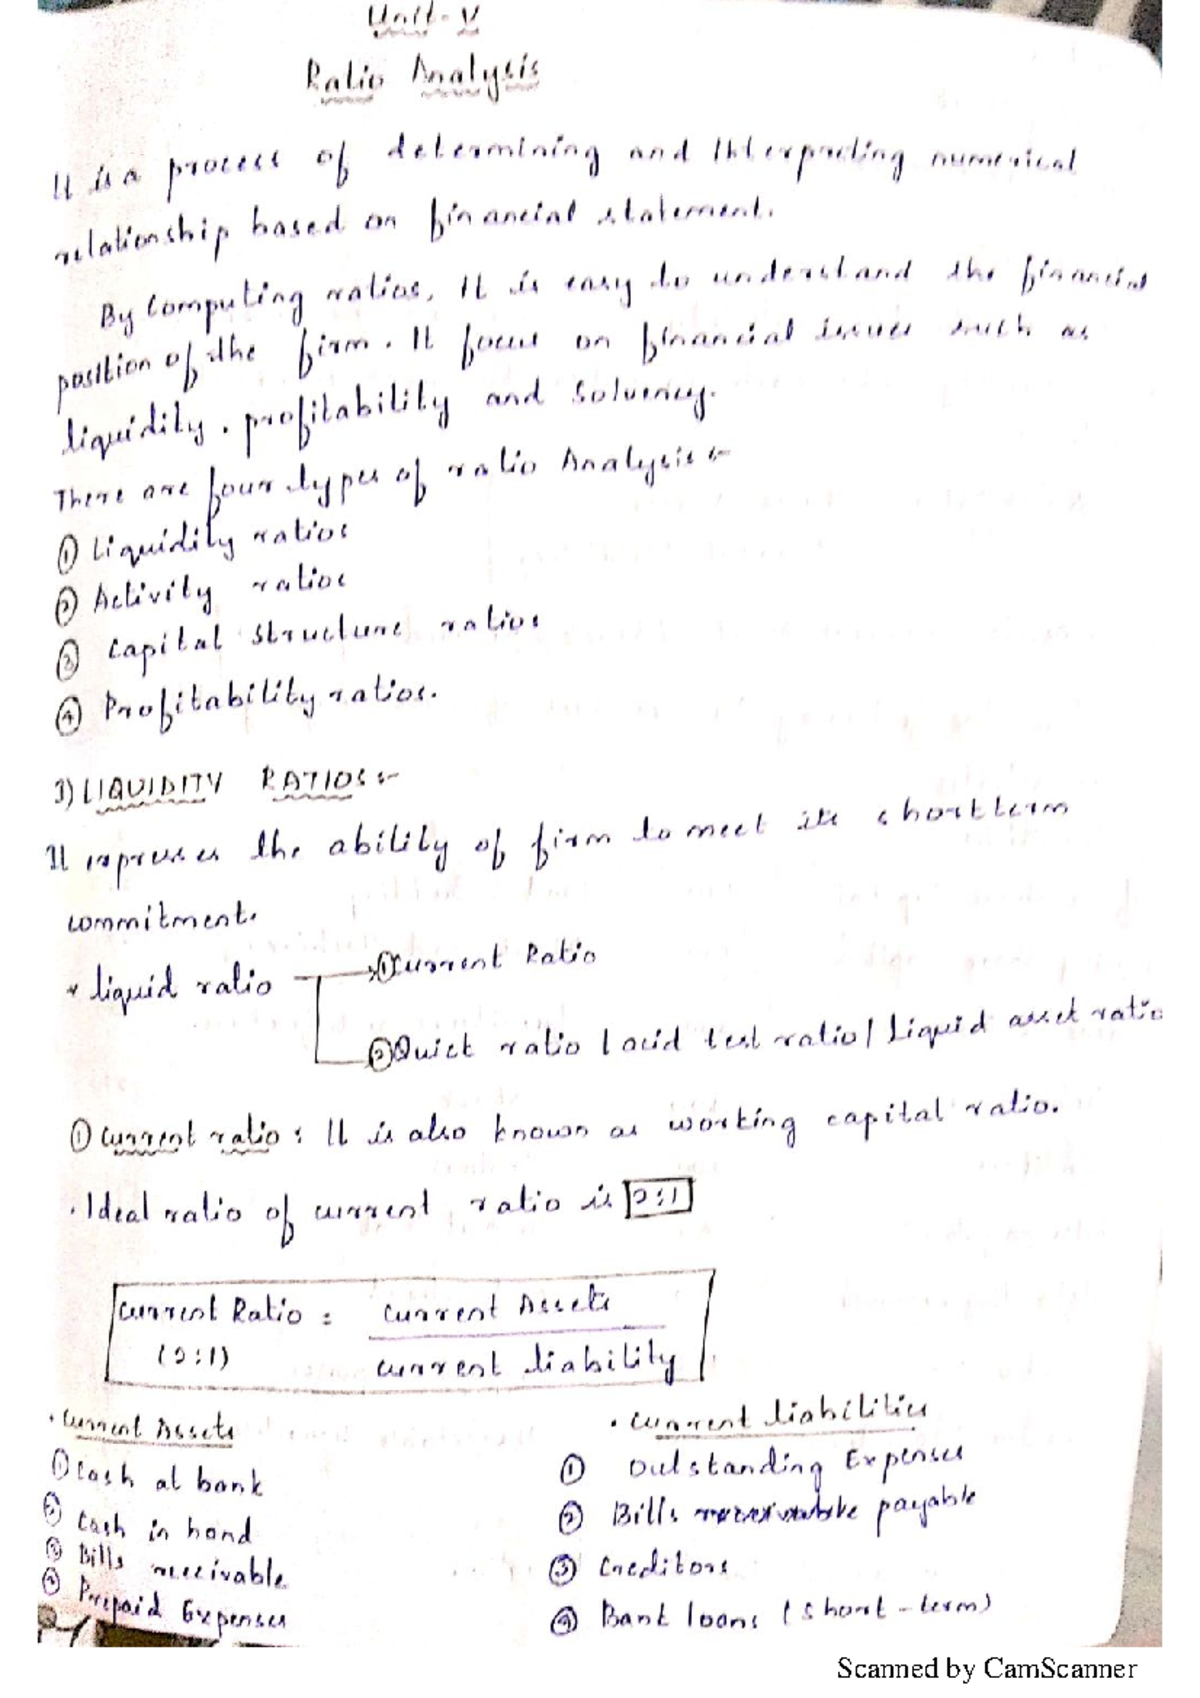 Unit-V
Ratio Analysis
It is a process of determining and Interpreting numerical
relationship based on financial statement.
By Computing ratios, It is easy to understand the financial
position of the firm. It focus on financial issues such as
liquidity, profitability and Solvency.
There are four types of ratio Analysis:-
① Liquidity ratios
② Activity ratios
③ Capital Structure ratios
④ Profitability ratios.
1) LIQUIDITY RATIOS:-
It expresses the ability of firm to meet its short term
commitment.
* liquid ratio → ① Current Ratio
② Quick ratio / acid test ratio / Liquid asset ratio
① Current ratio: It is also known as working capital ratio.
• Ideal ratio of current ratio is 2:1
Current Ratio = Current Assets
(2:1) Current liability
• Current Assets • Current liabilities
① Cash at bank ① Outstanding Expenses
② Cash in hand ② Bills payable
③ Bills receivable ③ Creditors
④ Prepaid Expenses ④ Bank loans (short-term)
Scanned by CamScanner